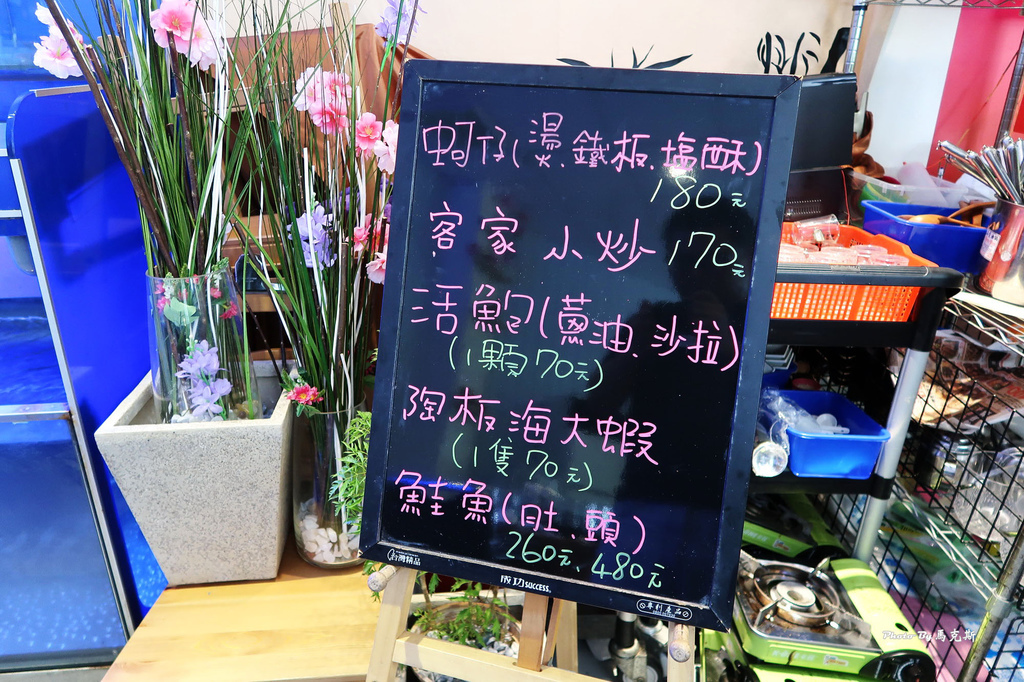 蚵仔(燙、鐵板、塩酥)
180元
客家小炒 170元
活鮑(蔥油、沙拉)
(1顆70元)
陶板海大蝦
(1隻70元)
鮭魚(肚、頭)
260元、480元
台灣精品
成功 SUCCESS.
專利產品
Photo By 馬克斯